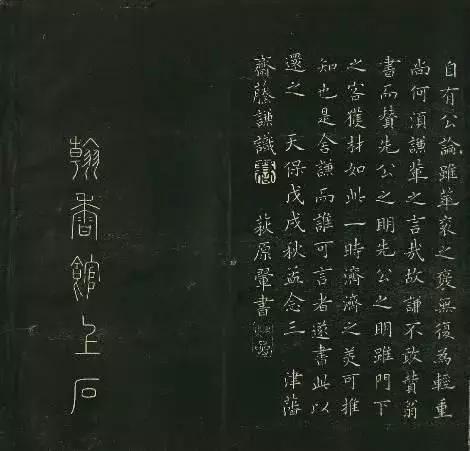 自有公論雖華袞之褒無復為輕重
尚何須謙輩之言哉故謙不敢贊翁
書而贊先公之明先公之明雖門下
之客獲材如此一時濟濟之美可推
知也是舍謙而誰可言者遂書此以
還之 天保戊戌秋孟念三 津藩
齋藤謙識
萩原翬書
翰香館上石